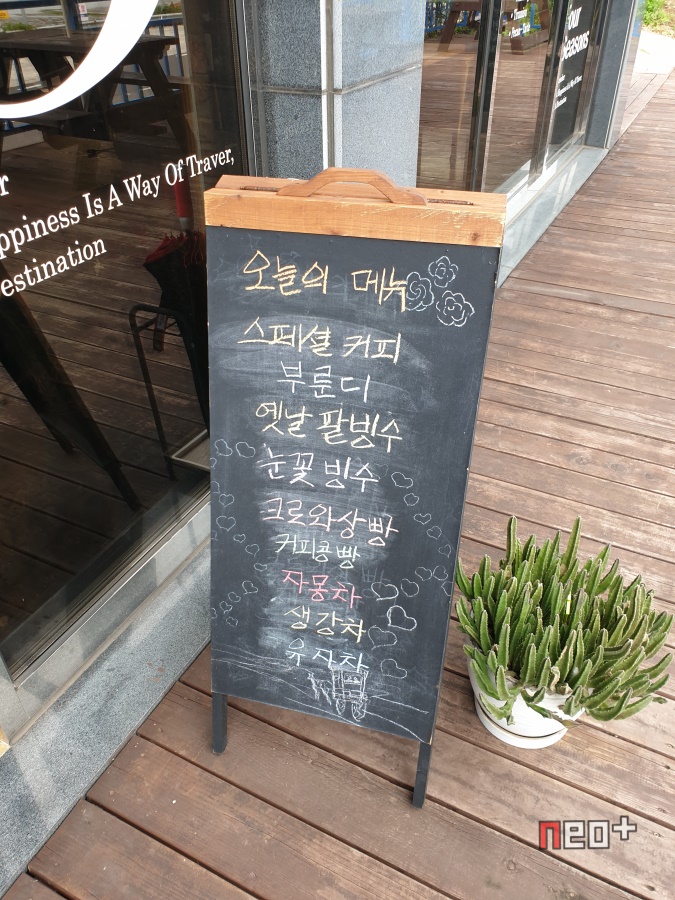 ppiness Is A Way Of Traver,
estination
오늘의 메뉴
스페셜 커피
부룬디
옛날 팥빙수
눈꽃 빙수
크로와상빵
커피콩빵
자몽차
생강차
유자차
neo+